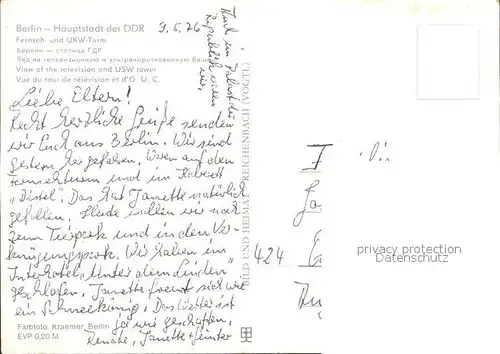 Berlin – Hauptstadt der DDR
Fernseh- und UKW-Turm
Берлин — столица ГДР
Вид на телевизионную и ультракоротковолновую башню
View of the television and USW tower
Vue du tour de télévision et d'O. U. C.
9.5.76
Auch im Palast der
Republik waren
wir.
Liebe Eltern!
Recht herzliche Grüße senden
wir Euch aus Berlin. Wir sind
gestern her gefahren. Waren auf dem
Fernsehturm und im Kabarett
"Distel". Das hat Janette natürlich
gefallen. Heute wollen wir noch
zum Tierpark und in den Ver-
gnügungspark. Wir haben im
Interhotel "Unter den Linden"
geschlafen. Janette freut sich wie
ein Schneekönig. Das Wetter ist
ja wie geschaffen.
Renate, Janette + Günter
Farbfoto: Kraemer, Berlin
EVP 0,20 M
BILD UND HEIMAT REICHENBACH (VOGTL)
424
privacy protection
Datenschutz